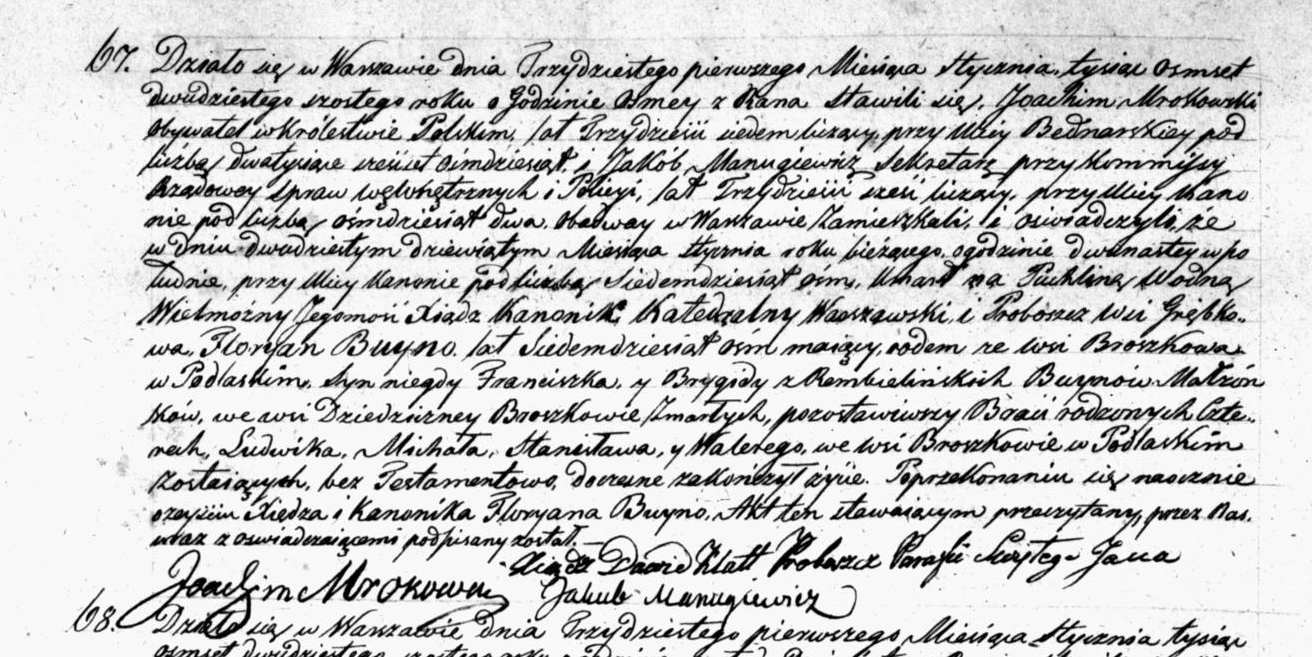 67. Działo się w Warszawie dnia Trzydziestego pierwszego Miesiąca stycznia, tysiąc osmset
dwudziestego szostego roku o Godzinie osmey z Rana stawili się, Joachim Mrokowski
Obywatel w Królestwie Polskim, lat Trzydzieści siedem liczący, przy Ulicy Bednarskiey pod
liczbą dwatysiące sześćset ośmdziesiąt, i Jakób Manugiewicz Sekretarz przy Kommissyi
Rządowey Spraw węwnętrznych i Policyi, lat Trzydzieści sześć liczący, przy Ulicy Kano
nie pod liczbą ośmdziesiąt dwa, obadway w Warszawie Zamieszkali, i oświadczyli, że
w dniu dwudziestym dziewiątym Miesiąca stycznia roku bieżącego, o godzinie dwunastey w po
łudnie, przy Ulicy Kanonie pod liczbą Siedemdziesiąt ośm, Umarł na Puchlinę Wodną
Wielmożny Jegomość Xiądz Kanonik Katedralny Warszawski, i Proboszcz Wsi Grębko-
wa, Floryan Buyno, lat Siedemdziesiąt ośm maiący, rodem ze wsi Broszkowa
w Podlaskim, Syn niegdy Franciszka, y Brygidy z Rembielińskich Buynów Małżon
ków, we wsi Dziedziczney Broszkowie Zmarłych, pozostawiwszy Braci rodzonych Czte-
rech, Ludwika, Michała, Stanisława, y Walerego, we wsi Broszkowie w Podlaskim
Zostaiących, bez Testamentowo, doczesne zakończył życie. Poprzekonaniu się naocznie
o zeyściu Xiędza i Kanonika Floryana Buyno, Akt ten stawaiącym przeczytany, przez Nas,
wraz z oświadczaiącemi podpisany został.
Xiądz Dawid Klatt Proboszcz Parafii Świętego Jana
Joachim Mrokowski Jakub Manugiewicz
68. Działo się w Warszawie dnia Trzydziestego pierwszego Miesiąca stycznia tysiąc
osmset dwudziestego szostego roku